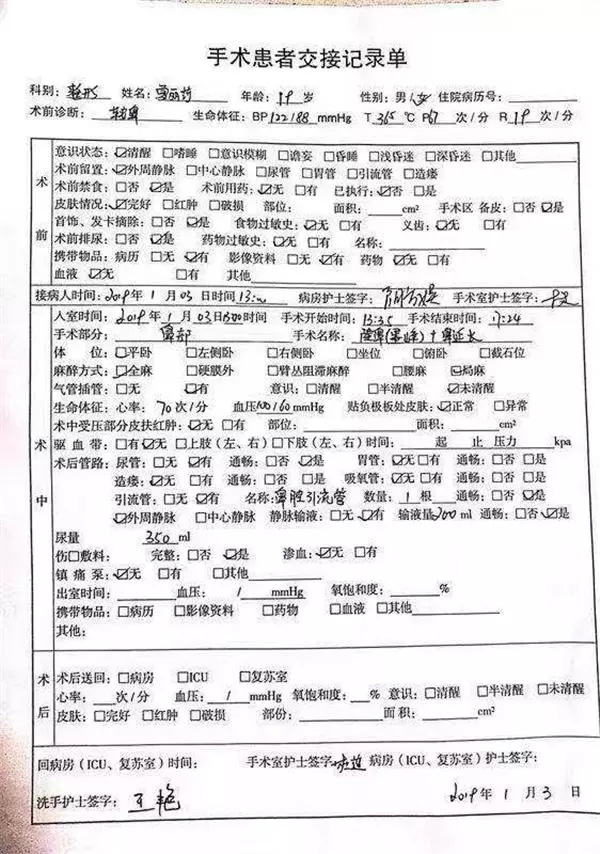 手术患者交接记录单
科别：整形 姓名： 年龄：19 岁 性别：男/女 住院病历号：
术前诊断： 生命体征：BP 122/88 mmHg T 365 ℃ P 67 次/分 R 19 次/分
术前
意识状态：☑清醒 □嗜睡 □意识模糊 □谵妄 □昏睡 □浅昏迷 □深昏迷 □其他
术前留置：☑外周静脉 □中心静脉 □尿管 □胃管 □引流管 □造瘘
术前禁食：□否 ☑是 术前用药：☑无 □有 已执行：☑否 □是
皮肤情况：☑完好 □红肿 □破损 部位： 面积： cm² 手术区 备皮：□否 ☑是
首饰、发卡摘除：□否 ☑是 食物过敏史：☑无 □有 义齿：☑无 □有
术前排尿：□否 ☑是 药物过敏史：☑无 □有 名称：
携带物品：病历 □无 ☑有 影像资料 ☑无 □有 药物 ☑无 □有
血液 ☑无 □有 其他
接病人时间：2019 年 1 月 03 日时间 13: 病房护士签字： 手术室护士签字：
术中
入室时间：2019 年 1 月 03 日 1300 时间 手术开始时间：13:35 手术结束时间：17:24
手术部分：鼻部 手术名称：隆鼻() + 鼻延长
体 位：☑平卧 □左侧卧 □右侧卧 □坐位 □俯卧 □截石位
麻醉方式：☑全麻 □硬膜外 □臂丛阻滞麻醉 □腰麻 ☑局麻
气管插管：□无 ☑有 意识：□清醒 □半清醒 ☑未清醒
生命体征：心率：70 次/分 血压 100/60 mmHg 贴负极板处皮肤：☑正常 □异常
术中受压部分皮扶红肿：☑无 □有 部位： 面积： cm²
驱 血 带：□有 ☑无 □上肢（左、右）□下肢（左、右）时间： 起 止 压力 kpa
术后管路：尿管：□无 ☑有 通畅：□否 ☑是 胃管：☑无 □有 通畅：□否 □是
造瘘：☑无 □有 通畅：□否 □是 吸氧管：☑无 □有 通畅：□否 □是
引流管：□无 ☑有 名称：鼻腔引流管 数量：1 根 通畅：□否 ☑是
☑外周静脉 □中心静脉 静脉输液：□无 ☑有 输液量 ml 通畅：□否 ☑是
尿量 350 ml
伤口敷料： 完整：□否 ☑是 渗血：☑无 □有
镇 痛 泵：☑无 □有 □其他
出室时间： 血压： / mmHg 氧饱和度： %
携带物品：□病历 □影像资料 □药物 □血液 □其他
其他:
术后
术后送回：□病房 □ICU □复苏室
心率： 次/分 血压： / mmHg 氧饱和度： % 意识：□清醒 □半清醒 □未清醒
皮肤：□完好 □红肿 □破损 部份： 面 积： cm²
回病房（ICU、复苏室）时间： 手术室护士签字 病房（ICU、复苏室）护士签字：
洗手护士签字：王艳 2019 年 1 月 3 日